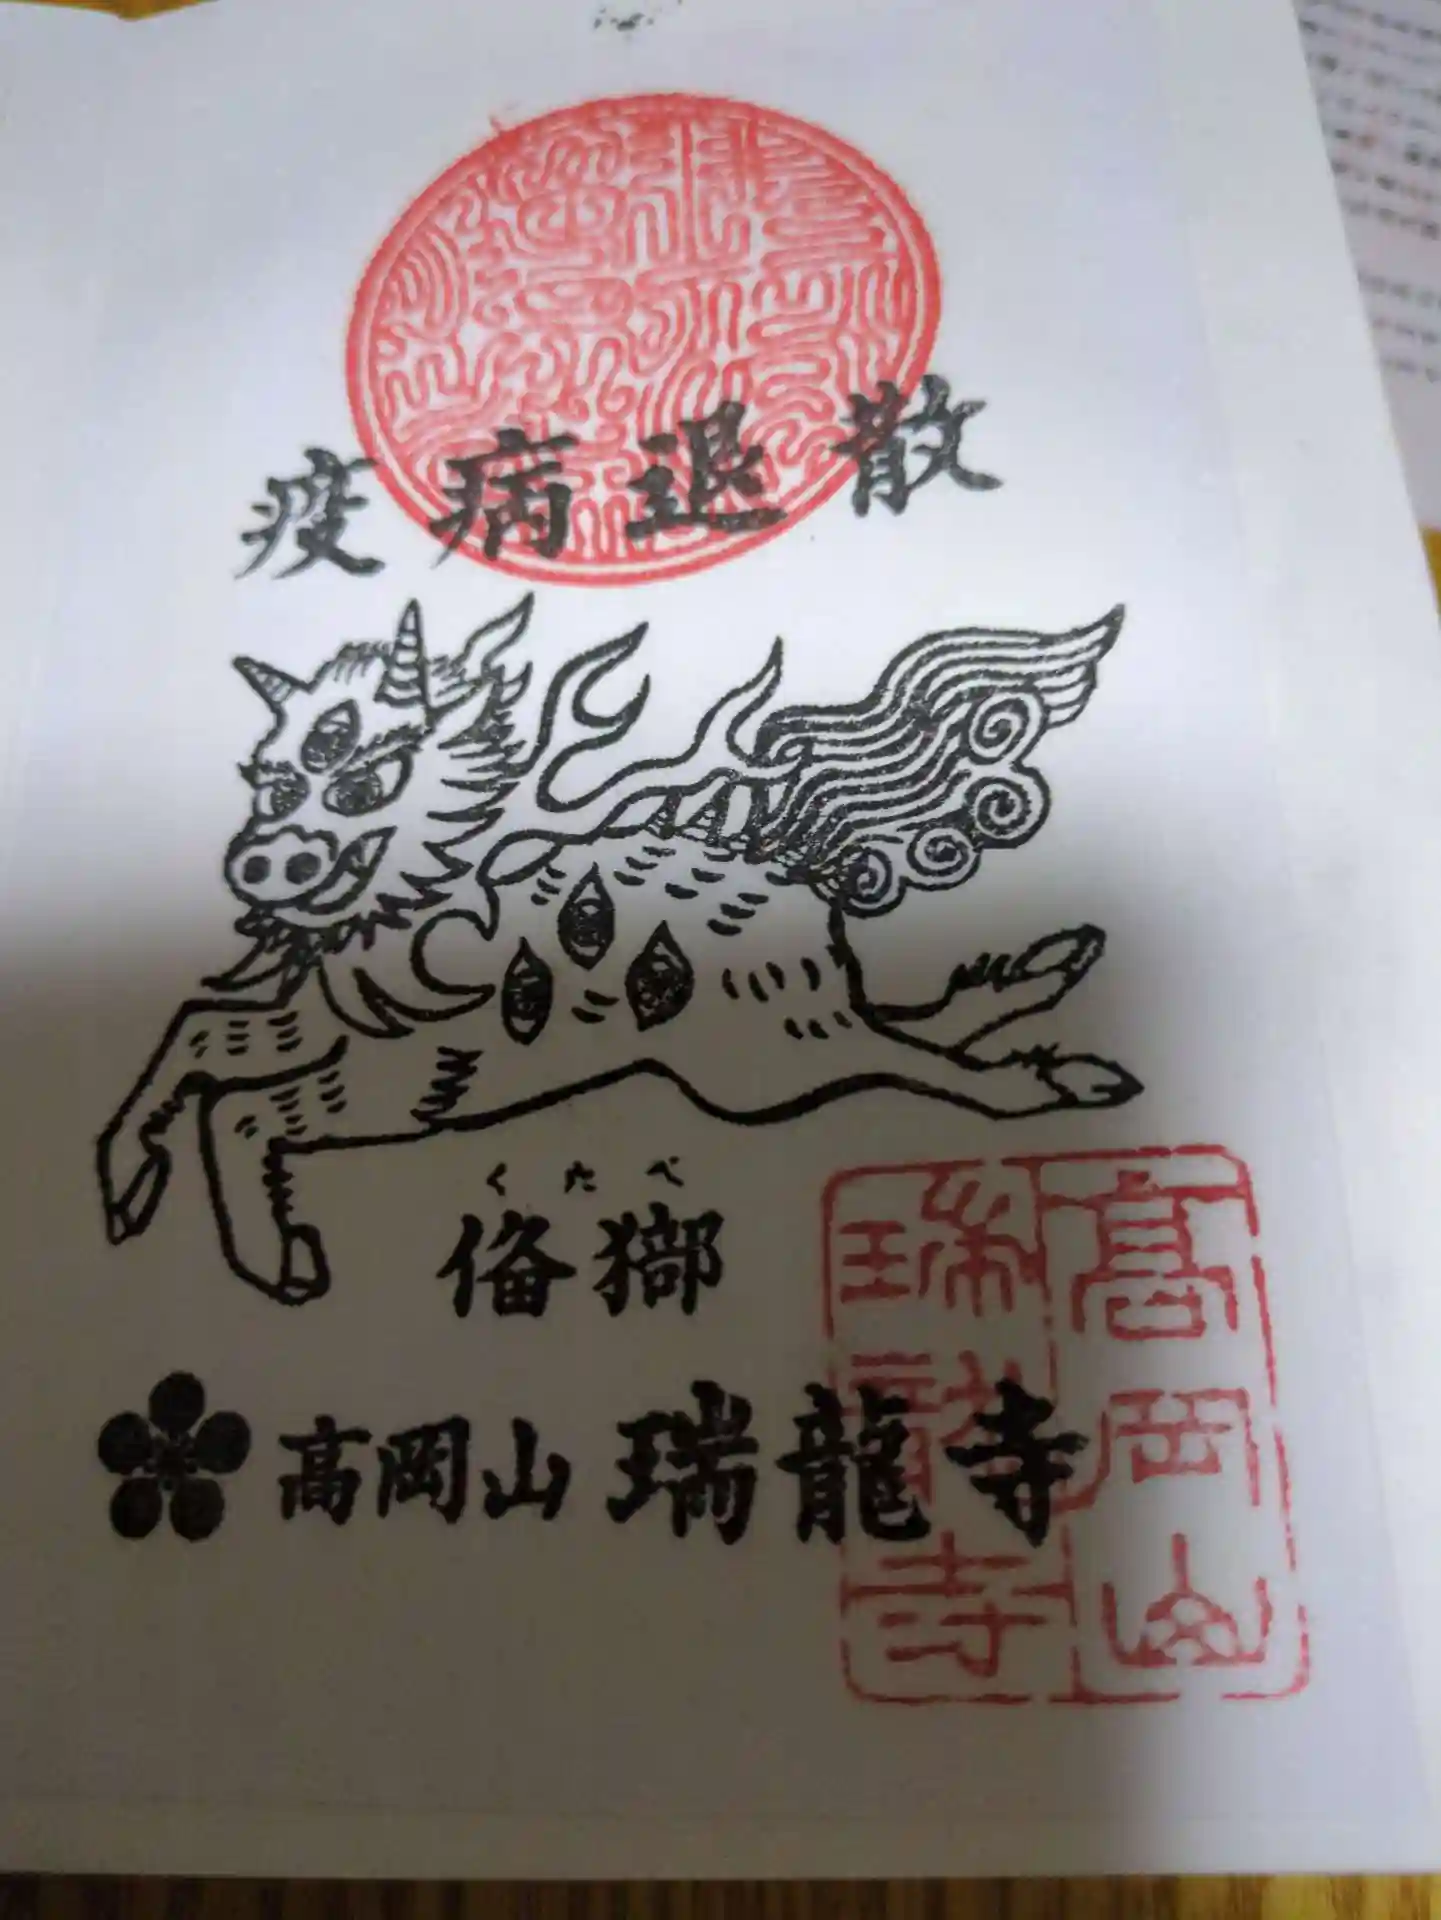 疫病退散
くたべ
高岡山 瑞龍寺
高岡山
瑞龍寺